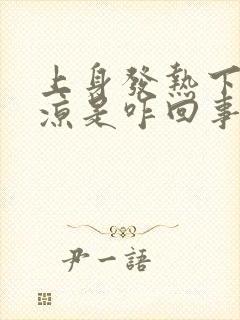 上身發熱下
涼是咋回事
尹一語